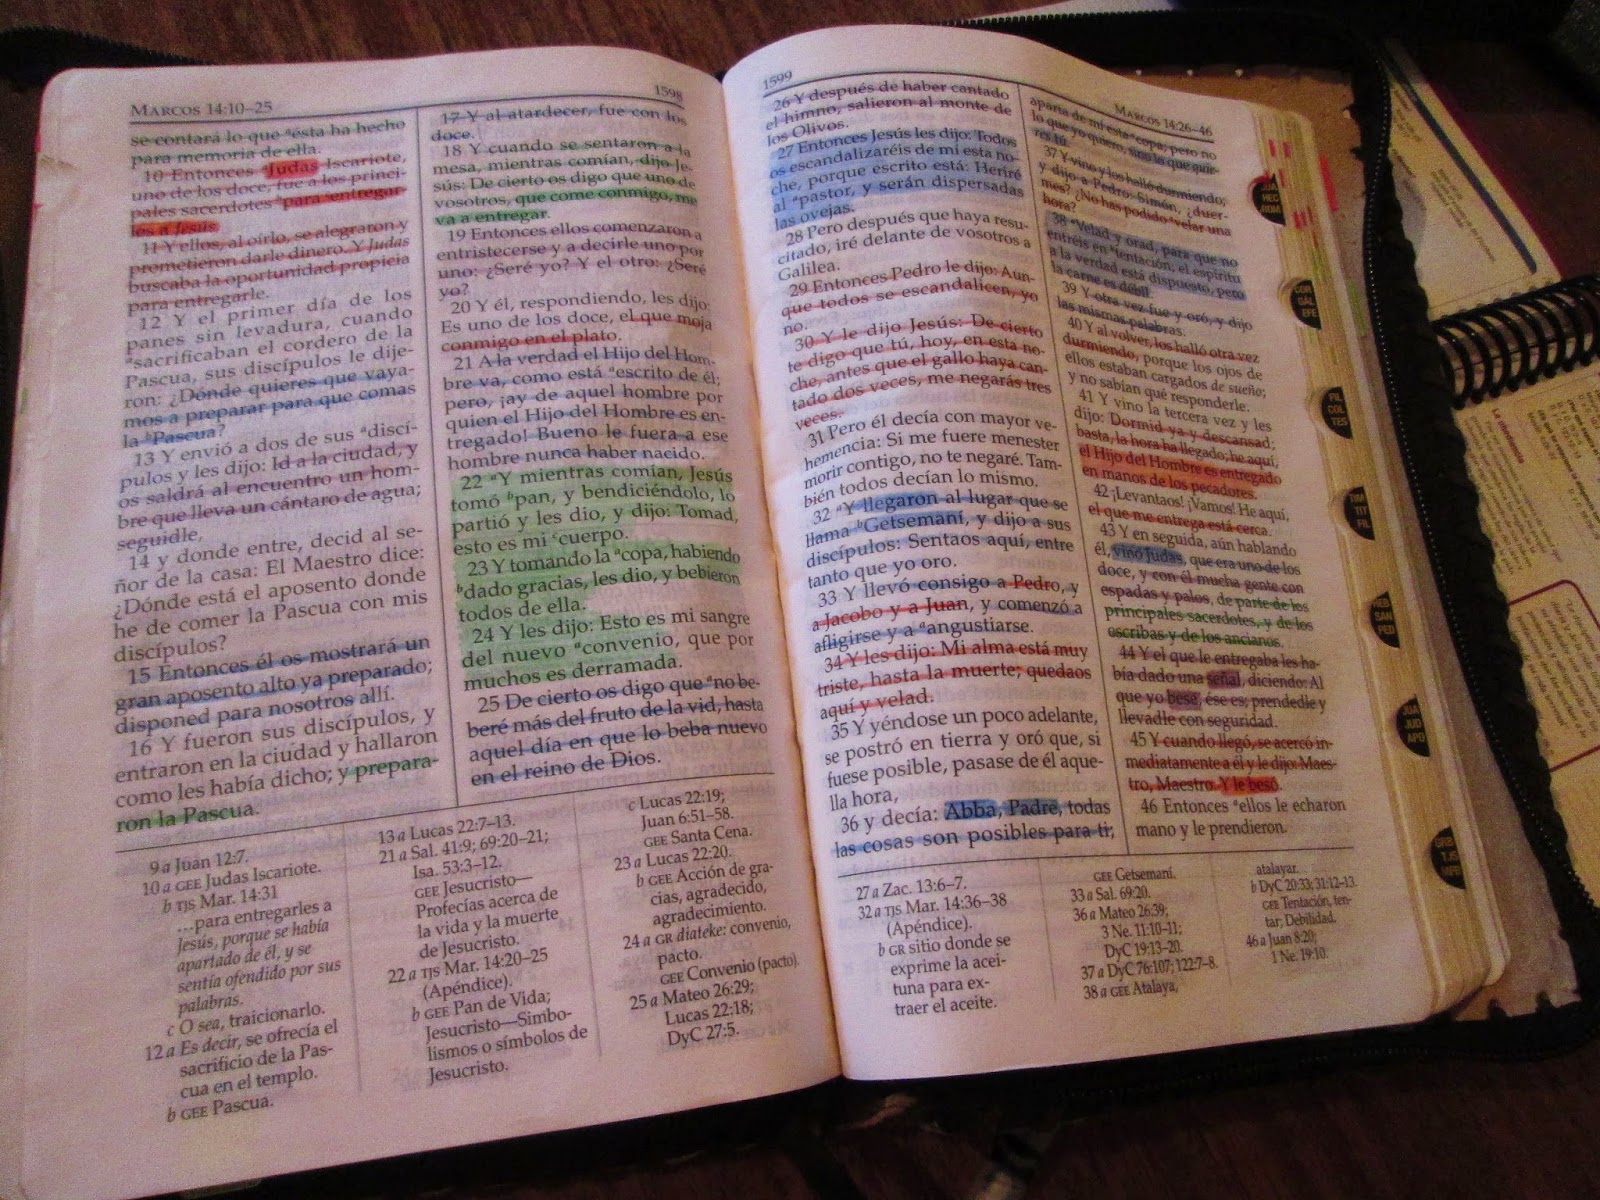 MARCOS 14:10–25
1598
se contará lo que ᵃésta ha hecho
para memoria de ella.
10 Entonces ᵃJudas Iscariote,
uno de los doce, fue a los princi-
pales sacerdotes ᵇpara ᶜentregar-
les a Jesús.
11 Y ellos, al oírlo, se alegraron y
prometieron darle dinero. Y Judas
buscaba la oportunidad propicia
para entregarle.
12 Y el primer día de los
panes sin levadura, cuando
ᵃsacrificaban el cordero de la
Pascua, sus discípulos le dije-
ron: ¿Dónde quieres que vaya-
mos a preparar para que comas
la ᵇPascua?
13 Y envió a dos de sus ᵃdiscí-
pulos y les dijo: Id a la ciudad, y
os saldrá al encuentro un hom-
bre que lleva un cántaro de agua;
seguidle,
14 y donde entre, decid al se-
ñor de la casa: El Maestro dice:
¿Dónde está el aposento donde
he de comer la Pascua con mis
discípulos?
15 Entonces él os mostrará un
gran aposento alto ya preparado;
disponed para nosotros allí.
16 Y fueron sus discípulos, y
entraron en la ciudad y hallaron
como les había dicho; y prepara-
ron la Pascua.
17 Y al atardecer, fue con los
doce.
18 Y cuando se sentaron a la
mesa, mientras comían, dijo Je-
sús: De cierto os digo que uno de
vosotros, que come conmigo, me
va a entregar.
19 Entonces ellos comenzaron a
entristecerse y a decirle uno por
uno: ¿Seré yo? Y el otro: ¿Seré
yo?
20 Y él, respondiendo, les dijo:
Es uno de los doce, el que moja
conmigo en el plato.
21 A la verdad el Hijo del Hom-
bre va, como está ᵃescrito de él;
pero, ¡ay de aquel hombre por
quien el Hijo del Hombre es en-
tregado! Bueno le fuera a ese
hombre nunca haber nacido.
22 ᵃY mientras comían, Jesús
tomó ᵇpan, y bendiciéndolo, lo
partió y les dio, y dijo: Tomad,
esto es mi ᶜcuerpo.
23 Y tomando la ᵃcopa, habiendo
ᵇdado gracias, les dio, y bebieron
todos de ella.
24 Y les dijo: Esto es mi sangre
del nuevo ᵃconvenio, que por
muchos es derramada.
25 De cierto os digo que ᵃno be-
beré más del fruto de la vid, hasta
aquel día en que lo beba nuevo
en el reino de Dios.
9 a Juan 12:7.
10 a GEE Judas Iscariote.
b TJS Mar. 14:31
…para entregarles a
Jesús, porque se había
apartado de él, y se
sentía ofendido por sus
palabras.
c O sea, traicionarlo.
12 a Es decir, se ofrecía el
sacrificio de la Pas-
cua en el templo.
b GEE Pascua.
13 a Lucas 22:7–13.
21 a Sal. 41:9; 69:20–21;
Isa. 53:3–12.
GEE Jesucristo—
Profecías acerca de
la vida y la muerte
de Jesucristo.
22 a TJS Mar. 14:20–25
(Apéndice).
b GEE Pan de Vida;
Jesucristo—Simbo-
lismos o símbolos de
Jesucristo.
c Lucas 22:19;
Juan 6:51–58.
GEE Santa Cena.
23 a Lucas 22:20.
b GEE Acción de gra-
cias, agradecido,
agradecimiento.
24 a GR diateke: convenio,
pacto.
GEE Convenio (pacto).
25 a Mateo 26:29;
Lucas 22:18;
DyC 27:5.
1599
MARCOS 14:26–46
26 Y después de haber cantado
el himno, salieron al monte de
los Olivos.
27 Entonces Jesús les dijo: Todos
os escandalizaréis de mí esta no-
che, porque escrito está: Heriré
al ᵃpastor, y serán dispersadas
las ovejas.
28 Pero después que haya resu-
citado, iré delante de vosotros a
Galilea.
29 Entonces Pedro le dijo: Aun-
que todos se escandalicen, yo
no.
30 Y le dijo Jesús: De cierto
te digo que tú, hoy, en esta no-
che, antes que el gallo haya can-
tado dos veces, me negarás tres
veces.
31 Pero él decía con mayor ve-
hemencia: Si me fuere menester
morir contigo, no te negaré. Tam-
bién todos decían lo mismo.
32 ᵃY llegaron al lugar que se
llama ᵇGetsemaní, y dijo a sus
discípulos: Sentaos aquí, entre
tanto que yo oro.
33 Y llevó consigo a Pedro, y
a Jacobo y a Juan, y comenzó a
afligirse y a ᵃangustiarse.
34 Y les dijo: Mi alma está muy
triste, hasta la muerte; quedaos
aquí y velad.
35 Y yéndose un poco adelante,
se postró en tierra y oró que, si
fuese posible, pasase de él aque-
lla hora,
36 y decía: Abba, Padre, todas
las cosas son posibles para ti;
aparta de mí esta ᵃcopa; pero no
lo que yo quiero, sino lo que quie-
res tú.
37 Y vino y los halló durmiendo;
y dijo a Pedro: Simón, ¿duer-
mes? ¿No has podido ᵃvelar una
hora?
38 ᵃVelad y orad, para que no
entréis en ᵇtentación; el espíritu
a la verdad está dispuesto, pero
la carne es débil.
39 Y otra vez fue y oró, y dijo
las mismas palabras.
40 Y al volver, los halló otra vez
durmiendo, porque los ojos de
ellos estaban cargados de sueño;
y no sabían qué responderle.
41 Y vino la tercera vez y les
dijo: Dormid ya y descansad;
basta, la hora ha llegado; he aquí,
el Hijo del Hombre es entregado
en manos de los pecadores.
42 ¡Levantaos! ¡Vamos! He aquí,
el que me entrega está cerca.
43 Y en seguida, aún hablando
él, vino Judas, que era uno de los
doce, y con él mucha gente con
espadas y palos, de parte de los
principales sacerdotes, y de los
escribas y de los ancianos.
44 Y el que le entregaba les ha-
bía dado una señal, diciendo: Al
que yo bese, ése es; prendedle y
llevadle con seguridad.
45 Y cuando llegó, se acercó in-
mediatamente a él y le dijo: Maes-
tro, Maestro. Y le besó.
46 Entonces ᵃellos le echaron
mano y le prendieron.
27 a Zac. 13:6–7.
32 a TJS Mar. 14:36–38
(Apéndice).
b GR sitio donde se
exprime la acei-
tuna para ex-
traer el aceite.
GEE Getsemaní.
33 a Sal. 69:20.
36 a Mateo 26:39;
3 Ne. 11:10–11;
DyC 19:13–20.
37 a DyC 76:107; 122:7–8.
38 a GEE Atalaya,
atalayar.
b DyC 20:33; 31:12–13.
GEE Tentación, ten-
tar; Debilidad.
46 a Juan 8:20;
1 Ne. 19:10.
HEC
ROM
COR
GÁL
EFE
FIL
COL
TES
TIM
TIT
FIL
HEB
SAN
PED
JUA
JUD
APO